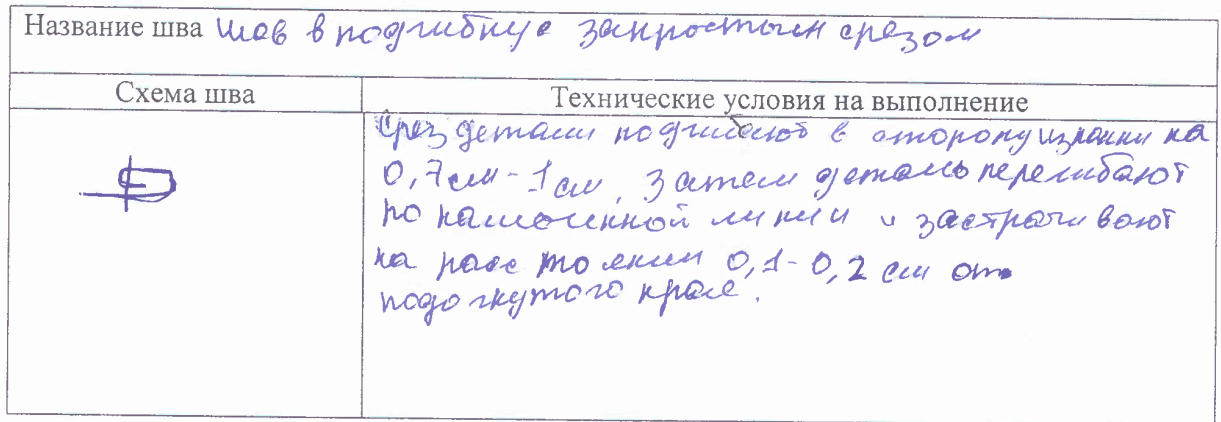 Название шва Шов в подгибку с закрытым срезом
Схема шва
Технические условия на выполнение
Срез детали подгибают в сторону изнанки на
0,7см-1см, Затем деталь перегибают
по намеченной линии и застрачивают
на расстоянии 0,1-0,2 см от
подогнутого края.